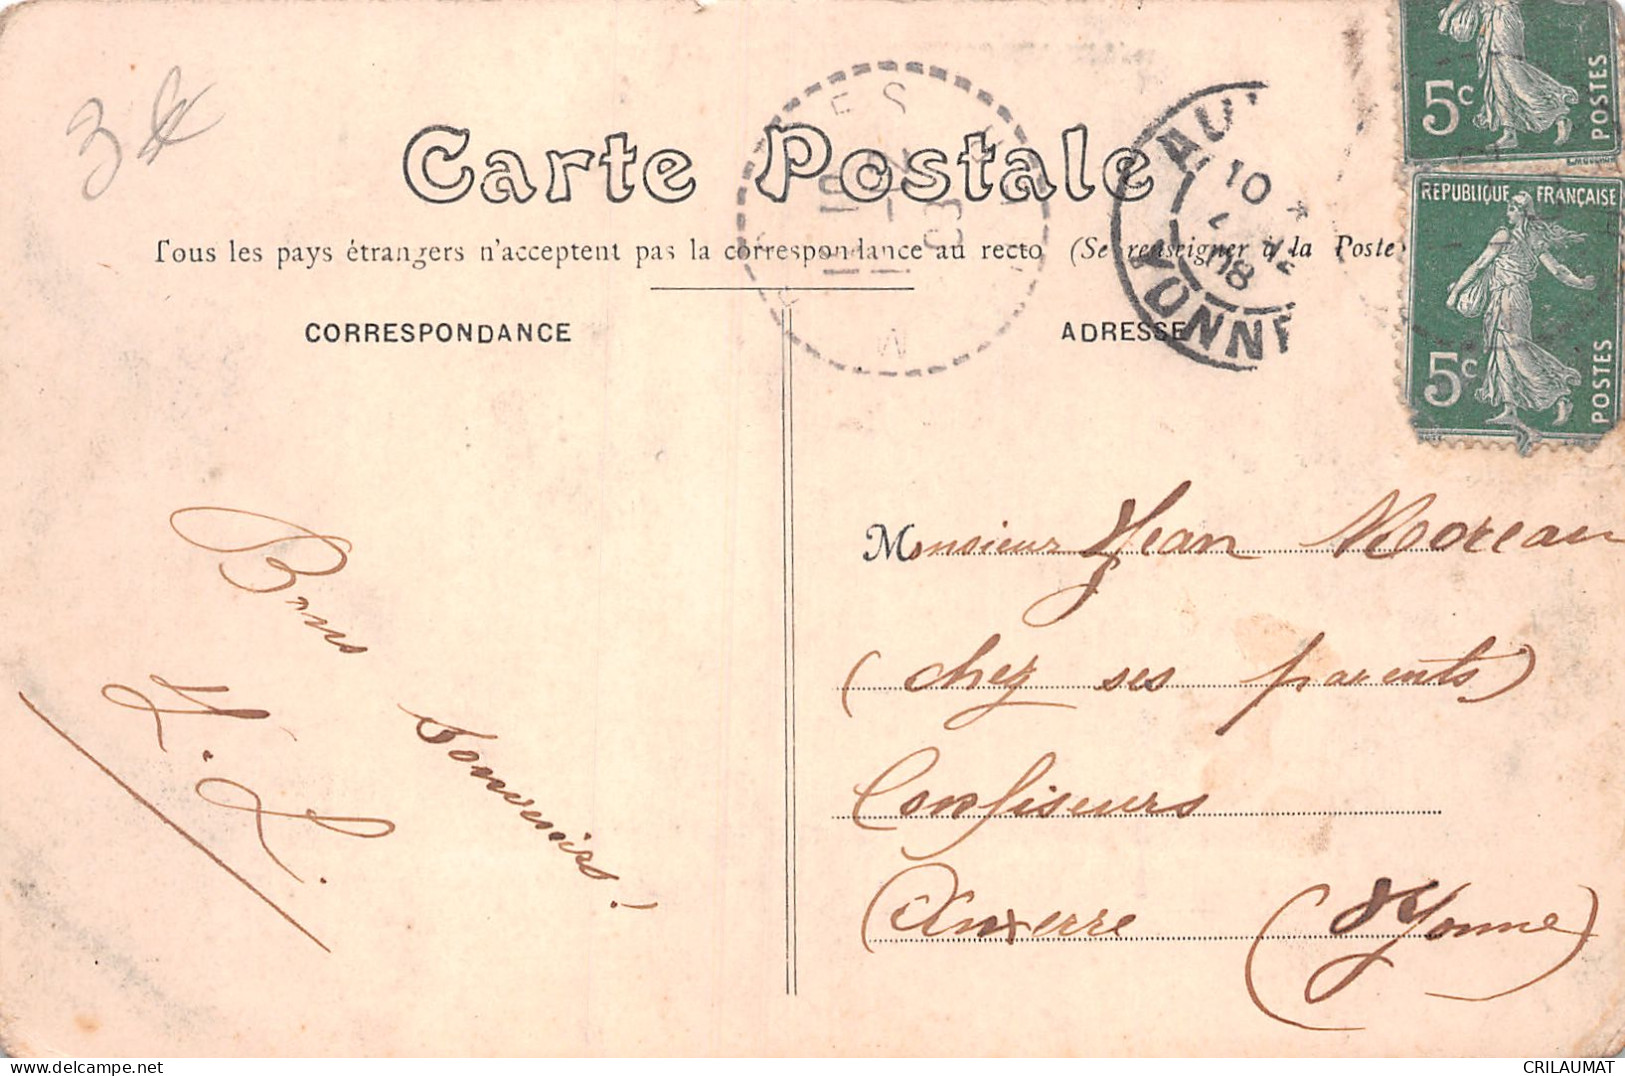 3
Carte Postale
Tous les pays étrangers n'acceptent pas la correspondance au recto (Se renseigner à la Poste)
CORRESPONDANCE
ADRESSE
10
08
YONNE
5c
POSTES
REPUBLIQUE FRANÇAISE
5c
POSTES
Bons souvenirs!
L. L.
Monsieur Jean Moreau
(chez ses parents)
Confiseurs
Auxerre (Yonne)
CRILAUMAT